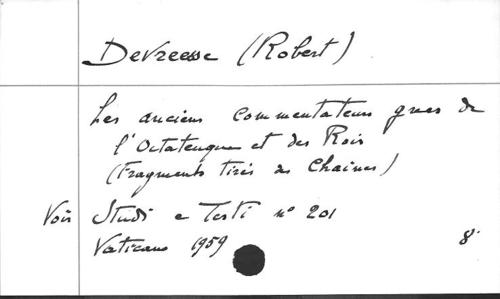 Devreesse (Robert)
Les anciens commentateurs grecs de
l'Octateuque et des Rois
(Fragments tirés des Chaînes)
Voir Studi e Testi n° 201
Vaticano 1959 8°